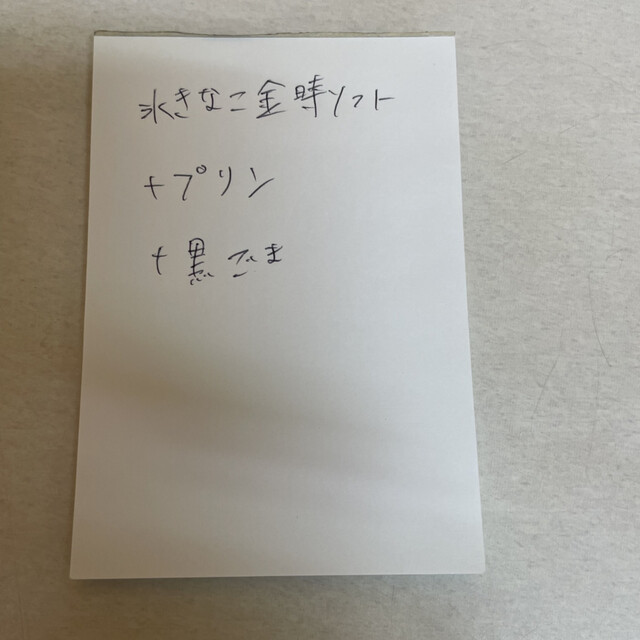 氷きなこ金時ソフト
+プリン
+黒ごま